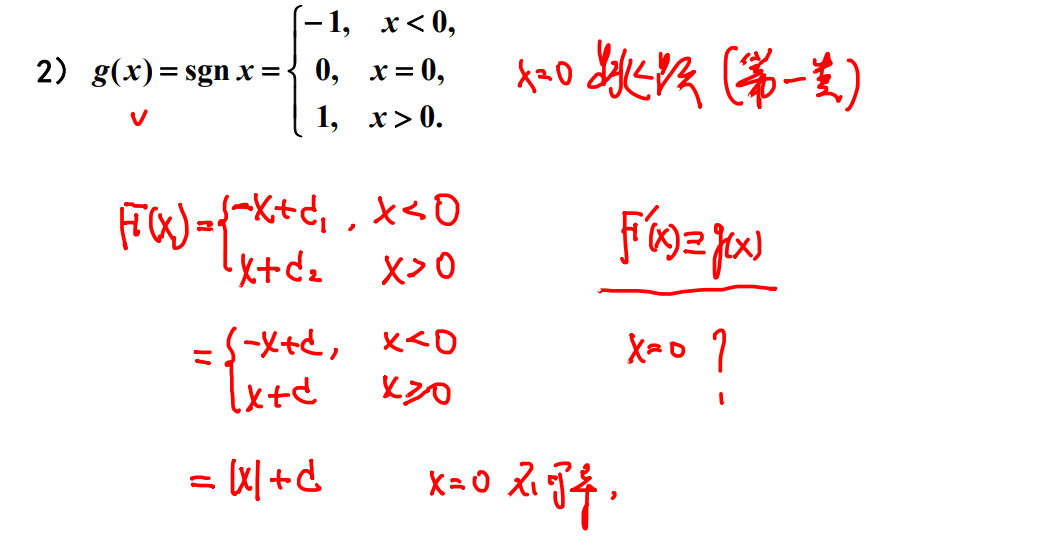 2) g(x) = sgn x = { -1, x < 0,
0, x = 0,
1, x > 0.
x=0 跳跃 (第一类)
F(x) = { -x+c₁, x<0
x+c₂ x>0
F'(x) ≡ g(x)
= { -x+c, x<0
x+c x⩾0
x=0 ?
= |x|+c x=0 不可导,